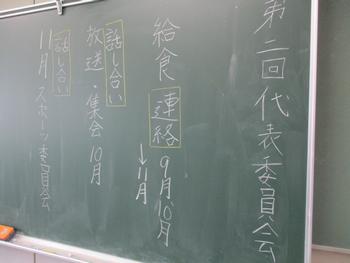 第二回代表委員会
給食 連絡 9月、10月
→11月
話し合い
放送・集会 10月
話し合い
11月 スポーツ委員会